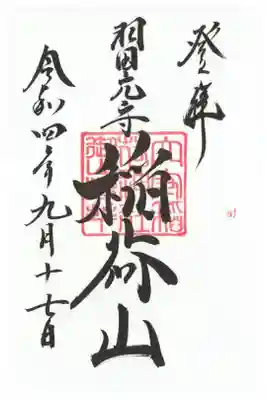 登拝
羽田穴守
稲荷山
令和四年九月十七日